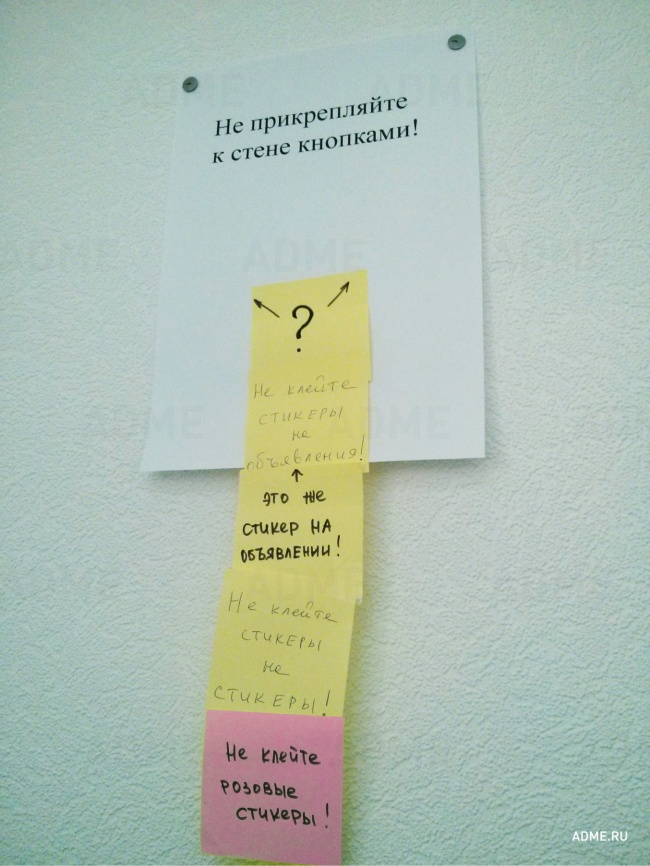 Не прикрепляйте
к стене кнопками!
?
Не клейте
стикеры
не
объявления!
ЭТО ЖЕ
СТИКЕР НА
ОБЪЯВЛЕНИИ!
Не клейте
СТИКЕРЫ
не
СТИКЕРЫ!
Не клейте
розовые
стикеры!
ADME.RU